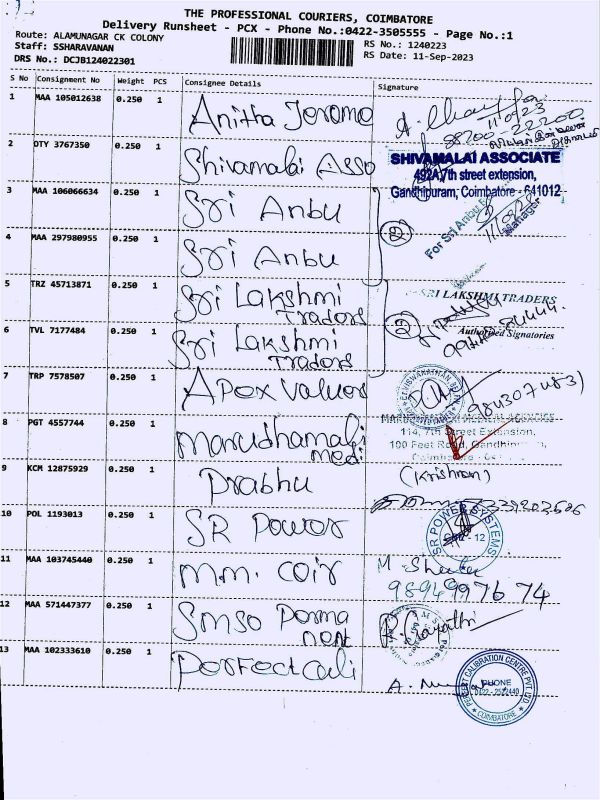 THE PROFESSIONAL COURIERS, COIMBATORE
Delivery Runsheet - PCX - Phone No.:0422-3505555 - Page No.:1
Route: ALAMUNAGAR CK COLONY
Staff: SSHARAVANAN
DRS No.: DCJB124022301
RS No.: 1240223
RS Date: 11-Sep-2023
S No Consignment No Weight PCS Consignee Details Signature
1 MAA 105012638 0.250 1 Anitha Jerome
11/09/23
98200-22200
2 OTY 3767350 0.250 1 Shivamalai Asso
SHIVAMALAI ASSOCIATE
492A,7th street extension,
Gandhipuram, Coimbatore - 641012
3 MAA 106066634 0.250 1 Sri Anbu
For Sri Anbu
Manager
4 MAA 297980955 0.250 1 Sri Anbu
2
5 TRZ 45713871 0.250 1 Sri Lakshmi Traders
SRI LAKSHMI TRADERS
Authorised Signatories
6 TVL 7177484 0.250 1 Sri Lakshmi Traders
2
7 TRP 7578507 0.250 1 Apex Values
8 PGT 4557744 0.250 1 Marudhamalai Medi
114, 7th Street Extension,
100 Feet Road, Gandhipuram,
9 KCM 12875929 0.250 1 Prabhu
(Krishnan)
10 POL 1193013 0.250 1 SR Power
SR POWER SYSTEMS
11 MAA 103745440 0.250 1 M.M. Coir
9894997674
12 MAA 571447377 0.250 1 SMSO Perma nent
13 MAA 102333610 0.250 1 Perfect Cali
PERFECT CALIBRATION CENTRE PVT. LTD.
PHONE
COIMBATORE